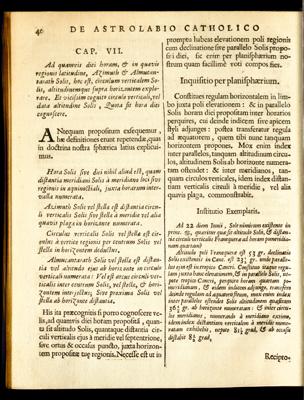 40
DE ASTROLABIO CATHOLICO
CAP. VII.
Ad quamvis diei horam, & in quavis
regione latitudine, Azimuth & Almucan-
tarath Solis, hoc est, circulum verticalem So-
lis, altitudinemque supra horizontem explo-
rare. Et vicissim cognito circulo verticali, vel
data altitudine Solis, Quota sit hora diei
cognoscere.
ANtequam propositum exsequemur,
hæ definitiones erunt repetendæ, quas
in doctrina nostra sphærica latius explicui-
mus.
Hora Solis sive diei nihil aliud est, quam
distantia meridiani Solis à meridiano loci sive
regionis in æquinoctiali, juxta horarum inter-
valla numerata.
Azimuth Solis vel stellæ est distantia circu-
li verticalis Solis sive stellæ à meridie vel aliâ
quavis plaga in horizonte numerata.
Circulus verticalis Solis vel stellæ est cir-
culus à vertice regionis per centrum Solis vel
stellæ in horizontem deductus.
Almucantarath Solis vel stellæ est distan-
tia vel altitudo ejus ab horizonte in circulo
verticali numerata: Vel est arcus circuli ver-
ticalis inter centrum Solis, vel stellæ, & hori-
zontem interjectus; Sive proxima Solis vel
stellæ ab horizonte distantia.
His ita præcognitis si porro cognoscere ve-
lis, ad quamvis diei horam proposita, quan-
ta sit altitudo Solis, quantaque distantia cir-
culi verticalis ejus à meridie vel septentrione,
sive ortus & occasus puncto, juxta horizon-
tem propositæ tuæ regionis. Necesse est ut in
promptu habeas elevationem poli regionis
cum declinatione sive parallelo Solis proposi-
ti diei, sic enim per planisphærium no-
strum quam facillime voti compos fies.
Inquisitio per planisphærium.
Constitues regulam horizontalem in lim-
bo juxta poli elevationem: & in parallelo
Solis horam diei propositam inter horarios
perquires, cui deinde indicem sive apicem
styli adjunges: postea transferatur regula
ad æquatorem, quem sibi nunc tanquam
horizontem propones. Mox enim index
inter parallelos, tanquam altitudinum circu-
los, altitudinem Solis ab horizonte numera-
tam ostendet: & inter meridianos, tan-
quam circulos verticales, idem index distan-
tiam verticalis circuli à meridie, vel alia
quavis plaga, commonstrabit.
Institutio Exemplaris.
Ad 22 diem Junii, Sole nimirum existente in
princ. ♋, quæritur quæ sit altitudo Solis, & distan-
tia circuli verticalis Francfurti ad horam pomeridia-
nam quartam?
Altitudo poli Francfurti est 53 gr. declinatio
Solis existentis in Canc. est 23½ gr. unde paralle-
lus ejus est ipse tropicus Cancri. Constituo itaque regu-
lam juxta hanc elevationem, & in parallelo Solis, nem-
pe tropico Cancri, perquiro horam quartam po-
meridianam, & eidem indicem adjungo, transfero
deinde regulam ad æquatorem, mox enim index
inter parallelos ostendet Solis altitudinem quasi
36½ gr. ab horizonte numeratam: & inter circu-
los meridianos, numerando à meridiano extimo,
idem index distantiam verticalem à meridie nume-
ratam exhibebit, nempe 81½ grad, & ab occasu
distabit 8½ grad.
Recipro-